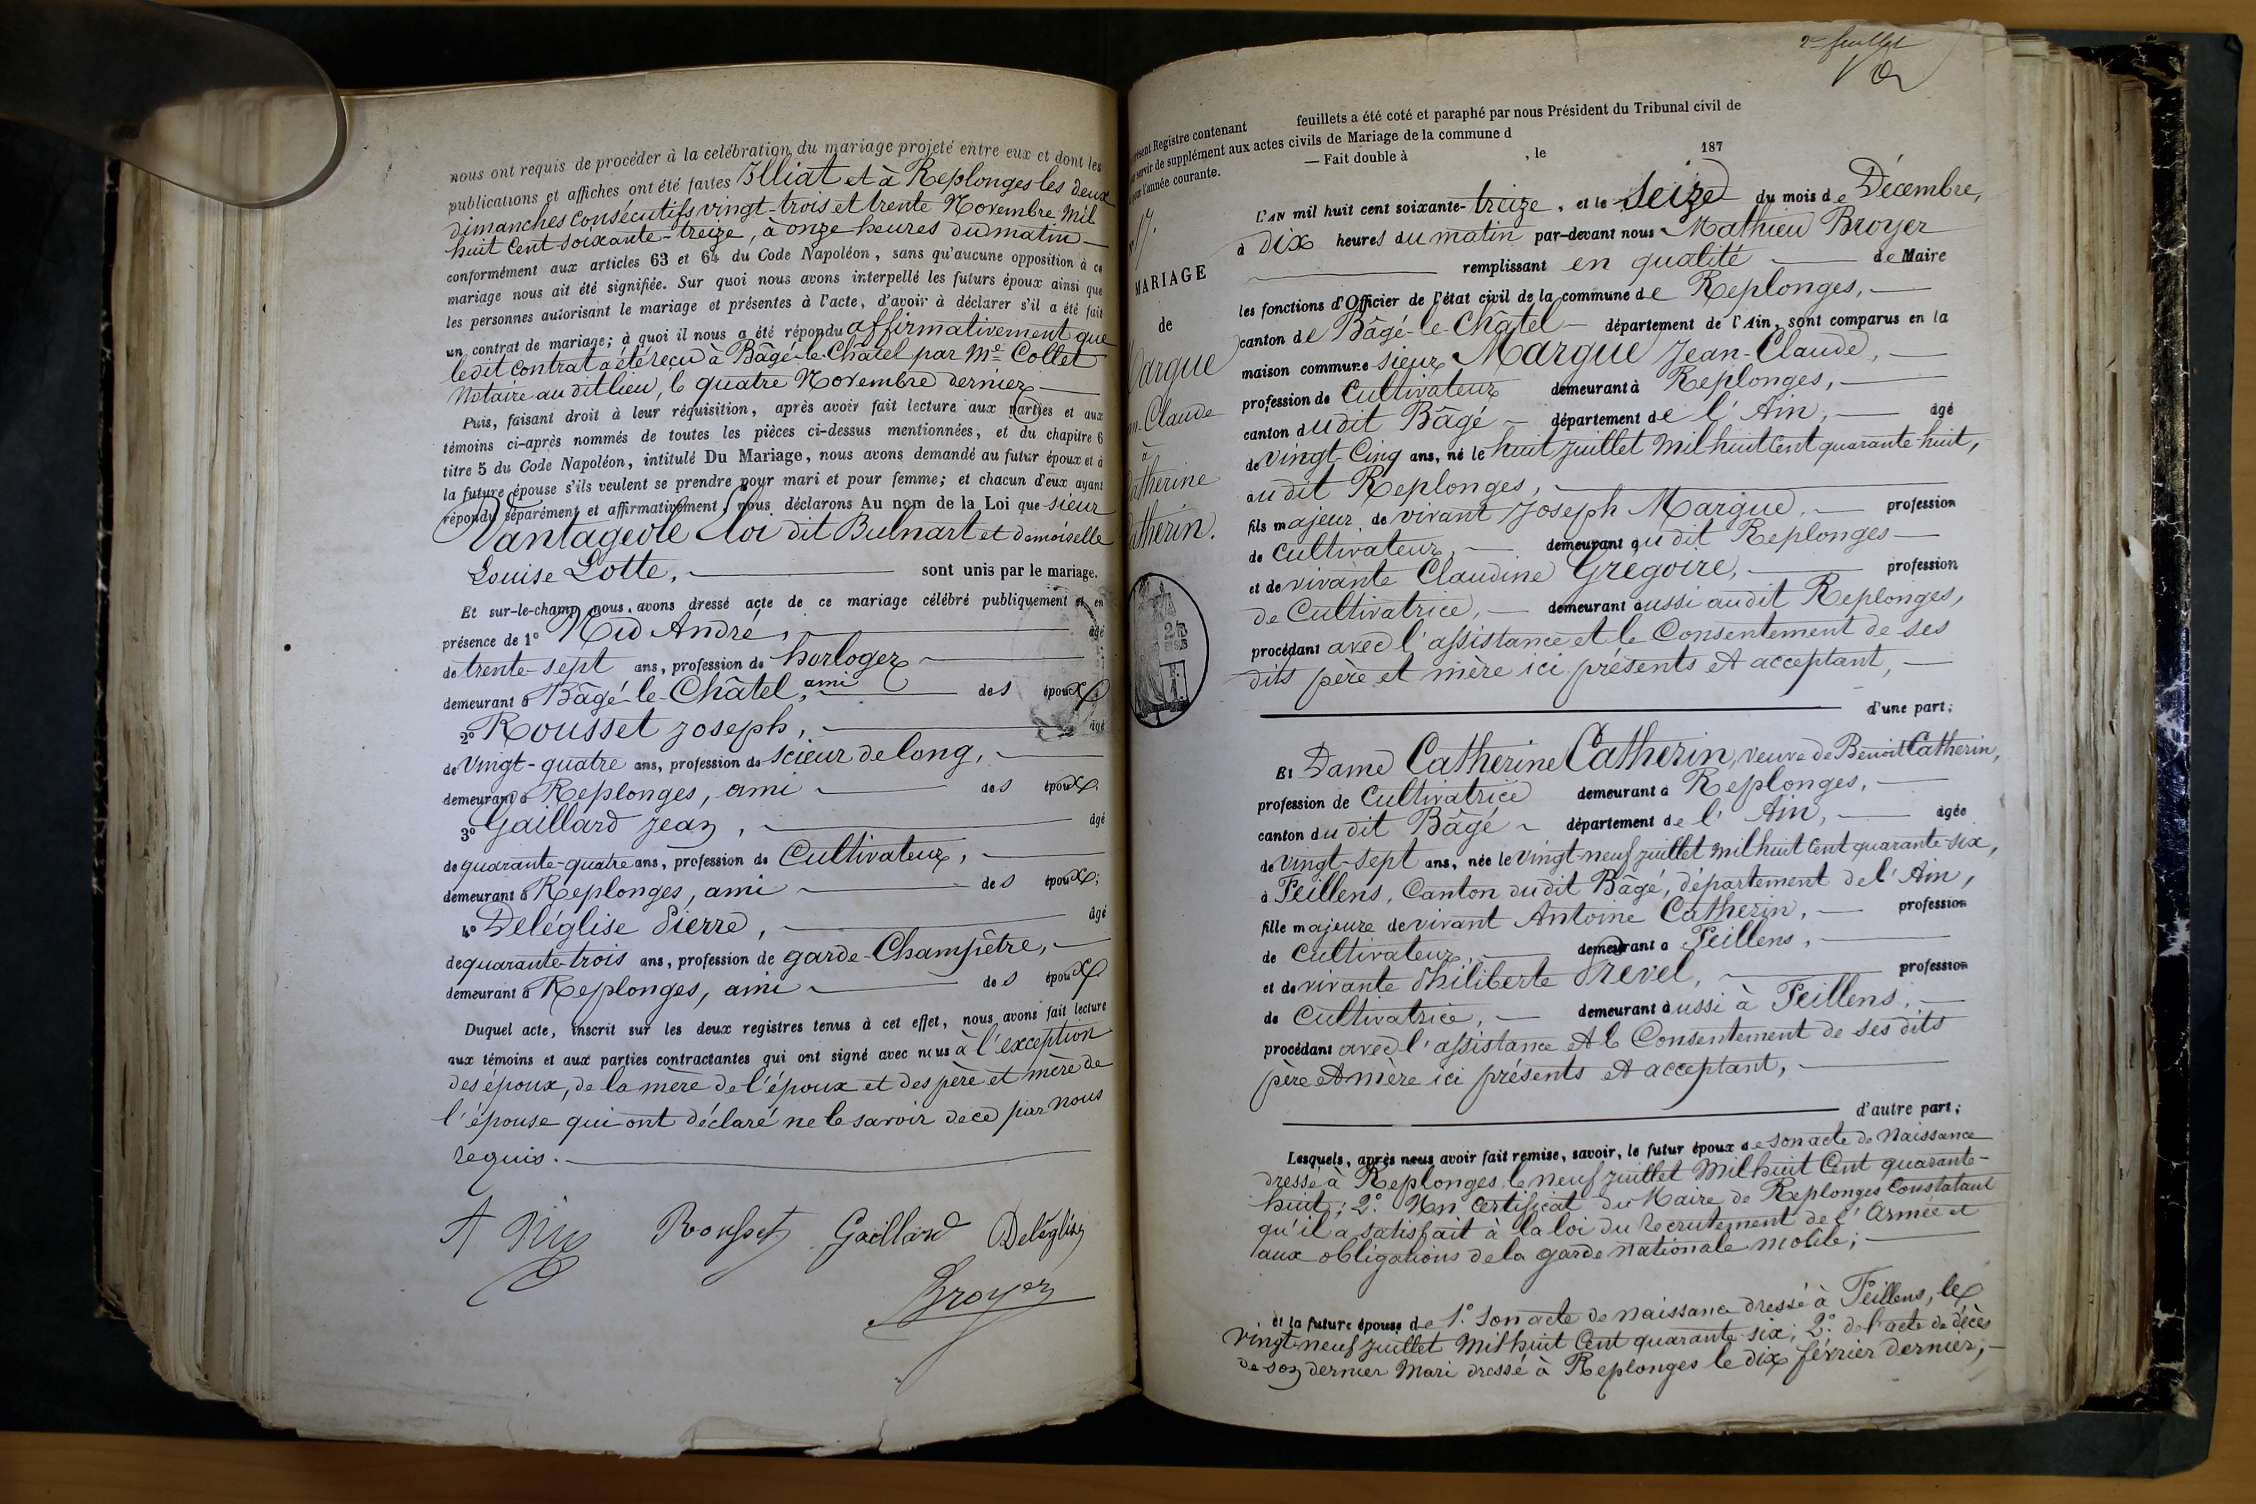 nous ont requis de procéder à la celébration du mariage projeté entre eux et dont les
publications et affiches ont été faites Illiat et à Replonges les deux
dimanches consécutifs vingt-trois et trente Novembre Mil
huit Cent soixante-treize, à onze heures du matin
conformément aux articles 63 et 64 du Code Napoléon, sans qu'aucune opposition à ce
mariage nous ait été signifiée. Sur quoi nous avons interpellé les futurs époux ainsi que
les personnes autorisant le mariage et présentes à l'acte, d'avoir à déclarer s'il a été fait
un contrat de mariage; à quoi il nous a été répondu affirmativement que
le dit contrat a été reçu à Bâgé-le-Châtel par Me Collet
Notaire au dit lieu, le quatre Novembre dernier
Puis, faisant droit à leur réquisition, après avoir fait lecture aux parties et aux
témoins ci-après nommés de toutes les pièces ci-dessus mentionnées, et du chapitre 6
titre 5 du Code Napoléon, intitulé Du Mariage, nous avons demandé au futur époux et à
la future épouse s'ils veulent se prendre pour mari et pour femme; et chacun d'eux ayant
répondu séparément et affirmativement, nous déclarons Au nom de la Loi que sieur
Vantageole Eloi dit Bulnart et demoiselle
Louise Lotte, sont unis par le mariage.
Et sur-le-champ nous avons dressé acte de ce mariage célébré publiquement et en
présence de 1° Nid André, âgé
de trente-sept ans, profession de horloger
demeurant à Bâgé-le-Châtel, ami des époux;
2° Rousset Joseph, âgé
de vingt-quatre ans, profession de scieur de long,
demeurant à Replonges, ami des époux;
3° Gaillard Jean, âgé
de quarante-quatre ans, profession de Cultivateur,
demeurant à Replonges, ami des époux;
4° Deléglise Pierre, âgé
de quarante-trois ans, profession de garde-Champêtre,
demeurant à Replonges, ami des époux
Duquel acte, inscrit sur les deux registres tenus à cet effet, nous avons fait lecture
aux témoins et aux parties contractantes qui ont signé avec nous à l'exception
des époux, de la mère de l'époux et des père et mère de
l'épouse qui ont déclaré ne le savoir de ce par nous
requis.
Rousset Gaillard Deléglise
Broyer
2e feuillet
présent Registre contenant feuillets a été coté et paraphé par nous Président du Tribunal civil de
servir de supplément aux actes civils de Mariage de la commune d
pour l'année courante. — Fait double à , le 187
17.
MARIAGE
de
Margue
Claude
à
Catherine
Catherin.
L'AN mil huit cent soixante-treize, et le seize du mois de Décembre,
à dix heures du matin par-devant nous Mathieu Broyer
remplissant en qualité de Maire
les fonctions d'Officier de l'état civil de la commune de Replonges,
canton de Bâgé-le-Châtel département de l'Ain, sont comparus en la
maison commune sieur Margue Jean-Claude,
profession de Cultivateur demeurant à Replonges,
canton du dit Bâgé département de l'Ain, âgé
de vingt-Cinq ans, né le huit juillet Mil huit Cent quarante-huit,
au dit Replonges,
fils majeur de vivant Joseph Margue, profession
de Cultivateur, demeurant au dit Replonges
et de vivante Claudine Gregoire, profession
de Cultivatrice, demeurant aussi audit Replonges,
procédant avec l'assistance et le Consentement de ses
dits père et mère ici présents et acceptant,
d'une part;
Et Dame Catherine Catherin, veuve de Benoit Catherin,
profession de Cultivatrice demeurant à Replonges,
canton du dit Bâgé département de l'Ain, âgée
de vingt-sept ans, née le vingt-neuf juillet mil huit Cent quarante-six,
à Feillens, Canton dudit Bâgé, département de l'Ain,
fille majeure de vivant Antoine Catherin, profession
de Cultivateur, demeurant à Feillens,
et de vivante Philiberte Prevel, profession
de Cultivatrice, demeurant aussi à Feillens,
procédant avec l'assistance et le Consentement de ses dits
père et mère ici présents et acceptant,
d'autre part;
Lesquels, après nous avoir fait remise, savoir, le futur époux de son acte de Naissance
dressé à Replonges le neuf juillet Mil huit Cent quarante-
huit; 2° Un Certificat du Maire de Replonges Constatant
qu'il a satisfait à la loi du recrutement de l'Armée et
aux obligations de la garde nationale mobile;
et la future épouse de 1° Son acte de naissance dressé à Feillens, le
vingt-neuf juillet Mil huit Cent quarante-six; 2° de l'acte de décès
de son dernier Mari dressé à Replonges le dix février dernier;